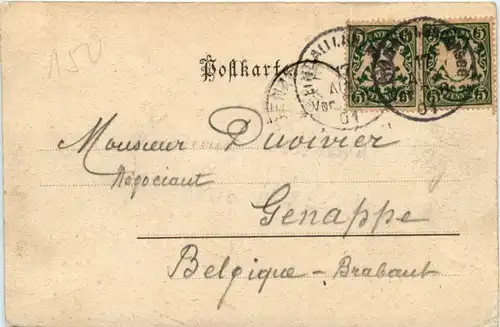 150
5 5 5 5
Postkarte
01 01
Monsieur Duvivier
Négociant
Genappe
Belgique - Brabant